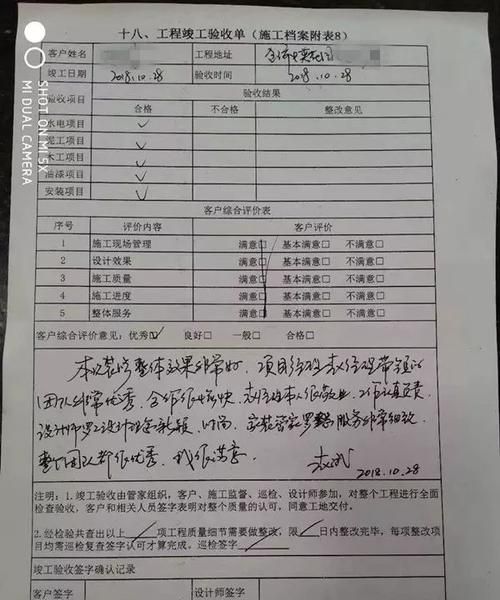 十八、工程竣工验收单（施工档案附表8）
客户姓名 工程地址
竣工日期 2018.10.28 验收时间 2018.10.28
验收项目 验收结果
合格 不合格 整改意见
水电项目 ✓
泥工项目 ✓
木工项目 ✓
油漆项目 ✓
安装项目 ✓
客户综合评价表
序号 评价内容 客户评价
1 施工现场管理 满意□ 基本满意□ 不满意□
2 设计效果 满意□ 基本满意□ 不满意□
3 施工质量 满意□ 基本满意□ 不满意□
4 施工进度 满意□ 基本满意□ 不满意□
5 整体服务 满意□ 基本满意□ 不满意□
客户综合评价意见：优秀☑ 良好□ 一般□ 合格□
本次装修整体效果非常好，项目经理 经理带领的
团队非常优秀，合作很愉快， 本人很敬业，工作认真负责
设计师罗 设计理念新颖，时尚，家装管家罗 服务非常细致
整个团队都很优秀，我很满意
2018.10.28
注明：1.竣工验收由管家组织，客户、施工监督、巡检、设计师参加，对整个工程进行全面
检查验收，客户和相关人员签字表明对整个质量的认可，同意工地交付。
2.经检验共查出以上 项工程质量细节需要做整改，限 日内整改完毕，每项整改项
目均需巡检复查签字认可才算完成。巡检签字
竣工验收签字确认记录
客户签字 设计师签字
SHOT ON MI 5X
MI DUAL CAMERA